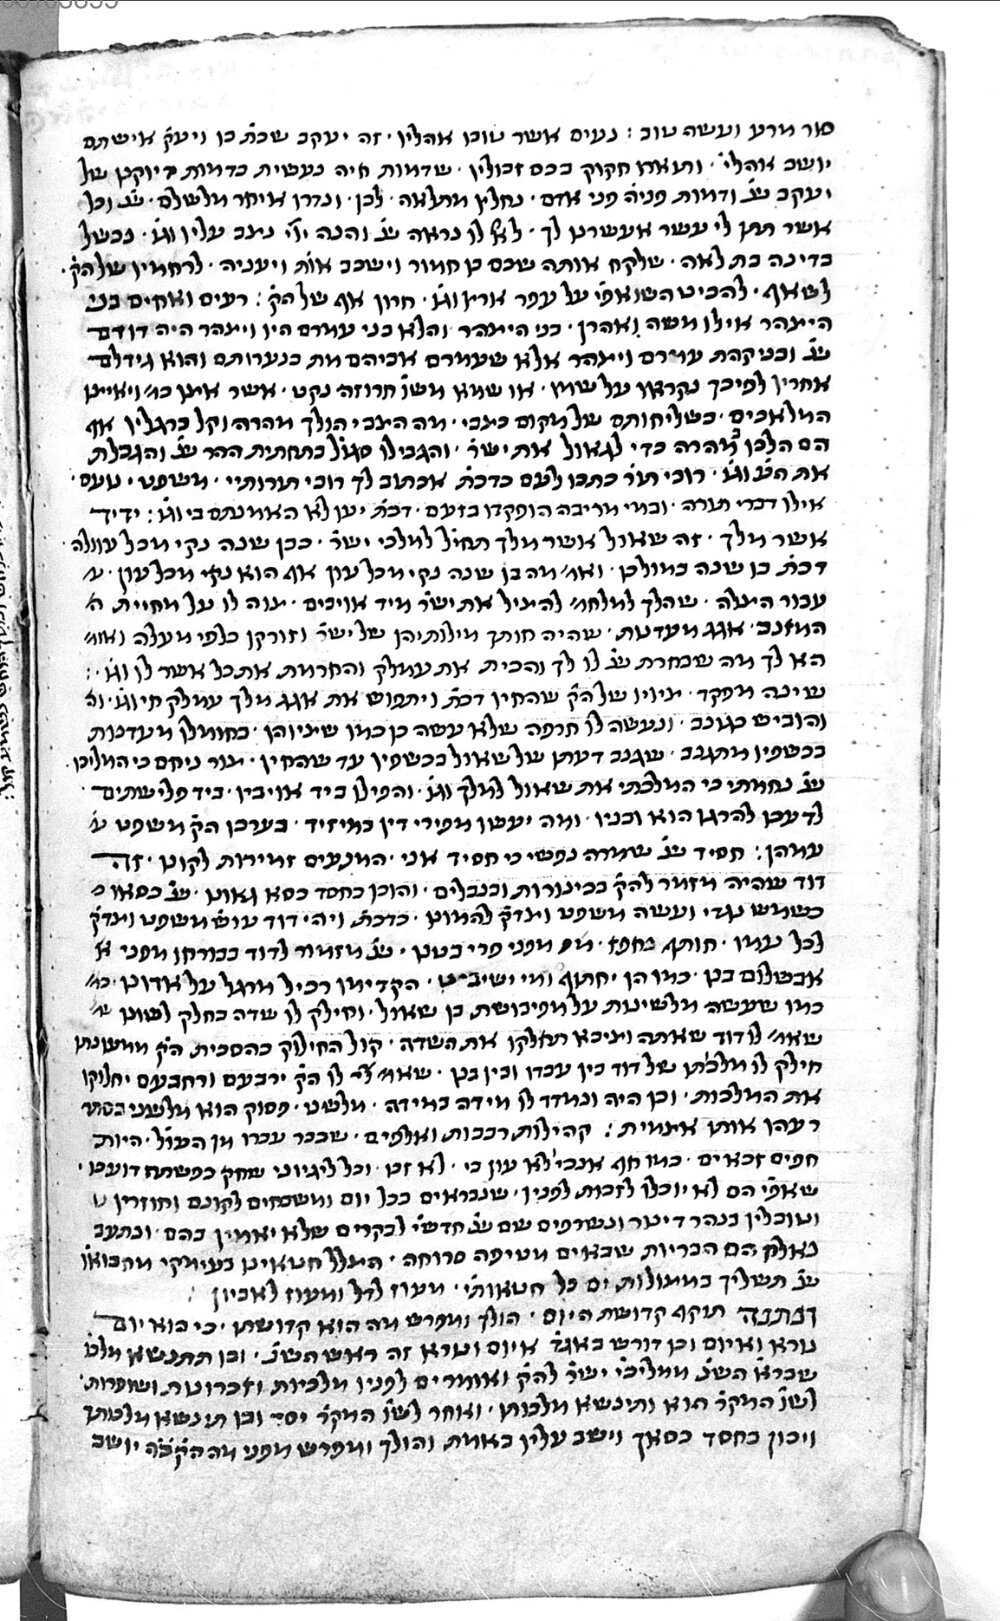 סור מרע ועשה טוב : נעים אשר טובו אהליו · זה יעקב שכת׳ בו ויעק׳ איש תם
יושב אוהלי׳ · ותוארו חקוק בכס זבולין · שדמות חיה נעשית כדמות דיוקנו של
יעקב שנ׳ ודמות פניה פני אדם · נחלץ מתלאה · לכן · ונדרו איחר מלשלם · שנ׳ וכל
אשר תתן לי עשר אעשרנו לך · לא׳ לו נראה שנ׳ והנה ייי׳ נצב עליו וגו׳ · נכשל
בדינה בת לאה · שלקח אותה שכם בן חמור וישכב אות׳ ויעניה · לרחמיו של הק׳ ·
לשאף · להביט השואפי׳ על עפר ארץ וגו׳ · חרון אף של הק׳ : רעים ואחים בני
היצהר אילו משה ואהרן · בני היצהר והלא בני עמרם היו ויצהר היה דודם
שנ׳ ובני קהת עמרם ויצהר אלא שעמרם אביהם מת בנערותם והוא גידלם
אחריו לפיכך נקראו על שמו · או שמא משו׳ חרוזה נקט · אשר אצו כצ׳ ויאיצו
המלאכים · בשליחותם של מקום כצבי · מה הצבי הולך מהרה וקל ברגליו אף
הם הלכו מהרה כדי לגאול את ישר׳ · והגבילו סגול בתחתית ההר שנ׳ והגבלת
את העם וגו׳ · רובי תור׳ כתבו לעם כדכת׳ אכתוב לך רובי תורותיי · משפט · טעם ·
אילו דברי תורה · ובמי מריבה הופקדו בזעם · דכת׳ יען לא האמנתם בי וגו׳ : ידיד
אשר מלך · זה שאול אשר מלך תחיל׳ למלכי ישר׳ · כבן שנה נקי מכל עוולה
דכת׳ בן שנה במולכו · ואמ׳ מה בן שנה נקי מכל עון אף הוא נקי מכל עון ·
עבור הצלה · שהלך למלחמ׳ להציל את ישר׳ מיד אויבים · צוה לו על מחיית
המזנב · אגג מעדנות · שהיה חותך מילותיהן של ישר׳ וזורקן כלפי מעלה ואומ׳
הא לך מה שבחרת שנ׳ לו לך והכית את עמלק והחרמת את כל אשר לו וגו׳ :
שינה מפקד · ציויו של הק׳ שהחיו דכת׳ ויתפוש את אגג מלך עמלק חי וגו׳ ·
והוביש כגונב · ונעשה לו חרפה שלא עשה כן כמו שציוהו · בחומלו מעדנות
בכשפיו מתגנב · שגנב דעתו של שאול בכשפיו עד שהחיו · צור ניחם כי המליכו
שנ׳ נחמתי כי המלכתי את שאול למלך וגו׳ · והפילו ביד אויביו · ביד פלישתים ·
לדעכו להרגו הוא ובניו · ומה יעשו מפירי דין במיזיד · בערכו הק׳ משפט
עמהן : חסיד שנ׳ שמרה נפשי כי חסיד אני · המנעים זמירות לקונו · זה
דוד שהיה מזמר להק׳ בכינורות ובנבלים · והוכן בחסד כסא גאונו · שנ׳ כסאו
כשמש נגדי ועשה משפט וצדק להמונו · כדכת׳ ויהי דוד עוש׳ משפט וצדק׳
לכל עמו · חותף בחפז · מס מפני פרי בטנו · שנ׳ מזמור לדוד בברחו מפני
אבשלום בנו · כמו הן יחתוף ומי ישיבינו · הקדימו רכיל מרגל על אדונו ·
כמו שעשה מלשינות על מפיבושת בן שאול · וחילק לו שדה כחלק לשונו
שאמ׳ לו דוד שאתה וציבא תחלקו את השדה · קול החילוק כהסכית הק׳ ממעונתו
חילק לו מלכותו של דוד בין עבדו ובין בנו · שאמ׳ לו הק׳ ירבעם ורחבעם יחלוקו
את המלכות · וכן היה ונמדד לו מידה במידה · מלשני · פסוק הוא מלשני בסתר
רעהו אותו אצמית : קהילות רבבות ואלפים · שכבר עברו מן העול׳ · היות
חפים זכאים · כמו חף אנכי לא עון בי · לא זכו · וכל ליגיוני שחק כפשתה דועכו ·
שאפי׳ הם לא יוכלו לזכות לפניו · שנבראים בכל יום ומשבחים לקונם וחוזרין
וטובלין בנהר דינור ונשרפים שם שנ׳ חדשי׳ לבקרים שלא יאמין בהם · ונתעב
נאלח הם הבריות שבאים מטיפה סרוחה · הצלל חטאינו בעימקי מהבואו
שנ׳ תשליך במצולות ים כל חטאותי׳ · מעוז לדל ומעוז לאביון :
ונתנה תוקף קדושת היום · הולך ומפרש מה הוא קדושתו · כי בוא יום
נורא ואיום וכן דורש באגד׳ איום ונורא זה ראש השנ׳ · ובו תתנשא מלכו׳
שברא׳ השנ׳ ממליכי׳ ישר׳ להק׳ ואומרים לפניו מלכיות וזכרונות ושופרות ·
לשו׳ המקר׳ הוא ותינשא מלכותו · ואחר לשו׳ המקר׳ יסד ובו תינשא מלכותך
ויכון בחסד כסאך וישב עליו באמת והולך ומפרש מפני מה הק׳ב׳ה יושב